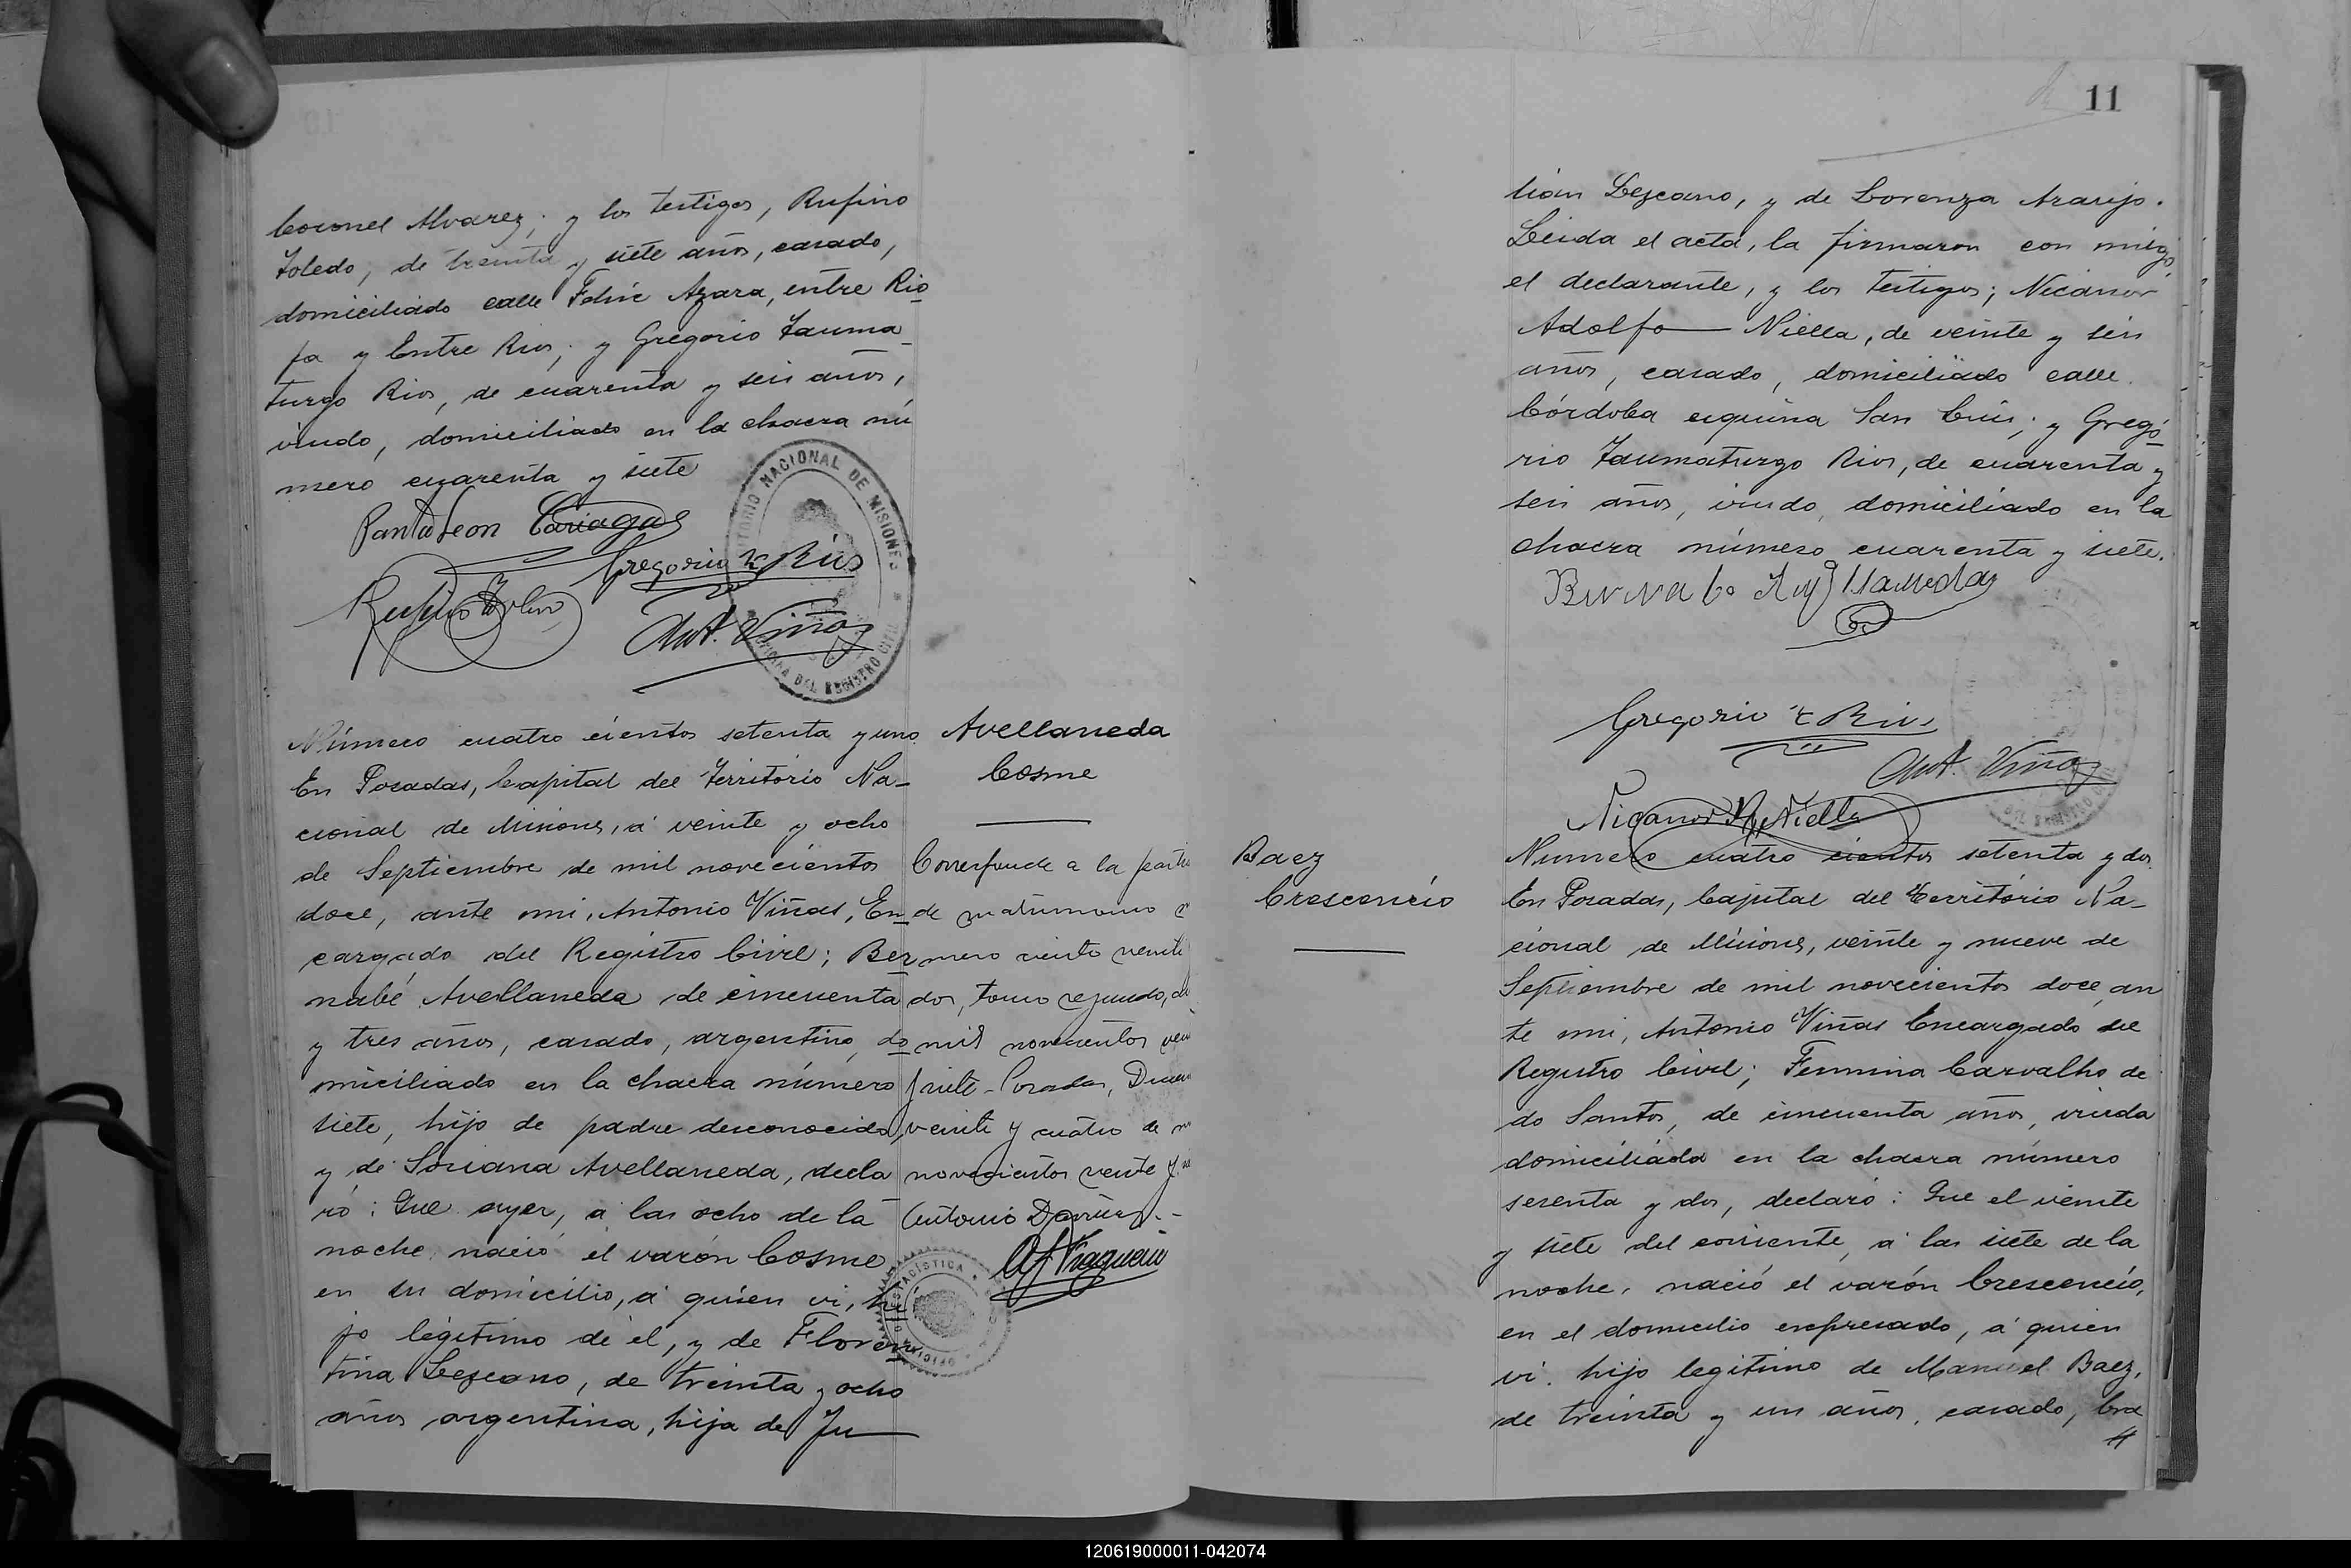 Coronel Alvarez; y los testigos, Rufino
Toledo, de treinta y siete años, casado,
domiciliado calle Felix Azara, entre Rio
ja y Entre Rios; y Gregorio Tauma_
turgo Rios, de cuarenta y seis años,
viudo, domiciliado en la chacra nú
mero cuarenta y siete
Pantaleon Cariaga
Gregorio T Rios
Rufino Toledo
Ant. Viñas
TERRITORIO NACIONAL DE MISIONES
OFICINA DEL REGISTRO CIVIL
Número cuatro cientos setenta y uno
En Posadas, Capital del Territorio Na_
cional de Misiones, á veinte y ocho
de Septiembre de mil novecientos
doce, ante mi, Antonio Viñas, En_
cargado del Registro Civil; Ber_
nabé Avellaneda de cincuenta
y tres años, casado, argentino, do_
miciliado en la chacra número
siete, hijo de padre desconocido,
y de Soriana Avellaneda, decla
ró: Que ayer, á las ocho de la
noche, nació el varón Cosme
en su domicilio, á quien vi, hi_
jo légitimo de él, y de Floren_
tina Lezcano, de treinta y ocho
años argentina, hija de Ju
Avellaneda
Cosme
Corresponde a la
de matrimonio
mero ciento veinte
dos, tomo segundo,
mil novecientos
siete - Posadas,
veinte y cuatro de
novecientos veinte y
Antonio
ESTADÍSTICA
11
lián Lezcano, y de Lorenza Araujo.
Leida el acta, la firmaron con migo
el declarante, y los testigos; Nicanor
Adolfo Niella, de veinte y seis
años, casado, domiciliado calle
Córdoba esquina San Luis; y Gregó_
rio Taumaturgo Rios, de cuarenta y
seis años, viudo, domiciliado en la
chacra número cuarenta y siete.
Gregorio T Rios
Ant. Viñas
Nicanor A. Niella
DEL REGISTRO
Baez
Crescencio
Numero cuatro cientos setenta y dos
En Posadas, Capital del Territorio Na_
cional de Misiones, veinte y nueve de
Septiembre de mil novecientos doce, an
te mi, Antonio Viñas Encargado del
Registro Civil; Fermina Carvalho de
do Santos, de cincuenta años, viuda
domiciliada en la chacra número
sesenta y dos, declaró: Que el veinte
y siete del corriente, á las siete de la
noche, nació el varón Crescencio,
en el domicilio expresado, á quien
vi. hijo legitimo de Manuel Baez,
de treinta y un años, casado, bra
120619000011-042074